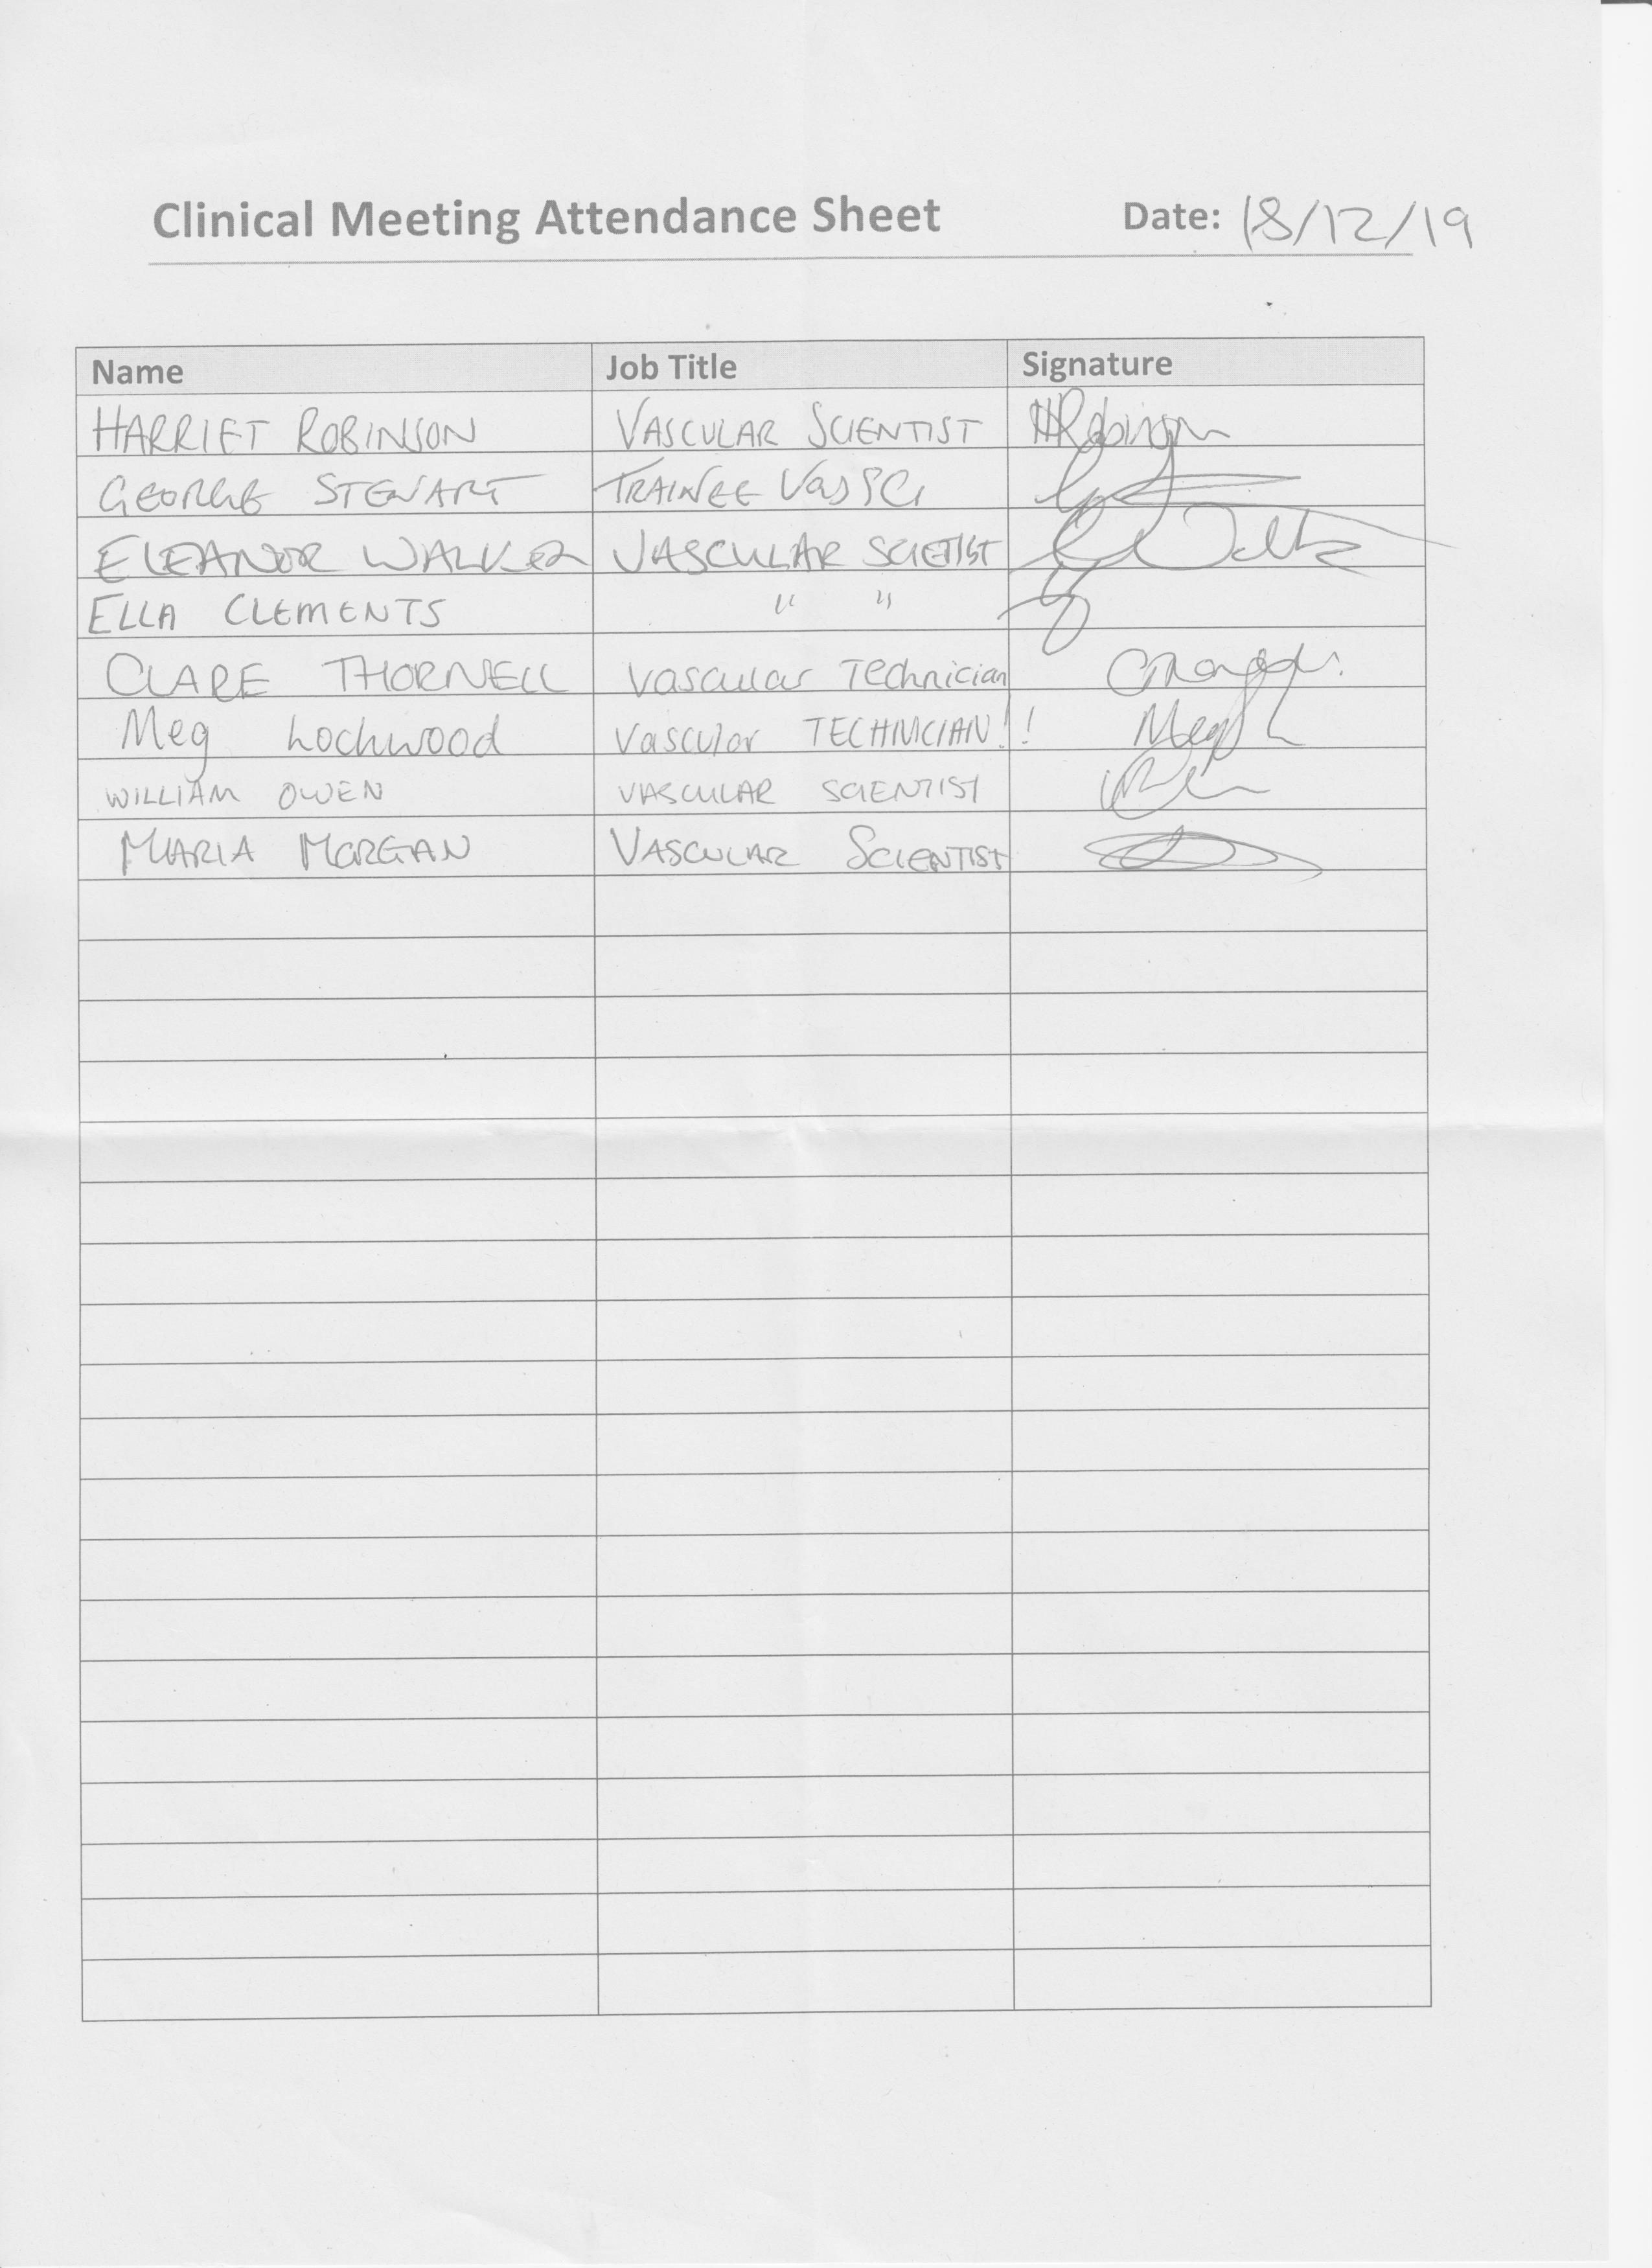 Clinical Meeting Attendance Sheet Date: 18/12/19
Name Job Title Signature
HARRIET ROBINSON VASCULAR SCIENTIST HRobinson
GEORGE STEWART TRAINEE VasSci
ELEANOR WALKER VASCULAR SCIETIST
ELLA CLEMENTS " "
CLARE THORNELL Vascular Technician
Meg Lochwood Vascular TECHNICIAN!!
WILLIAM OWEN VASCULAR SCIENTIST
MARIA MORGAN VASCULAR SCIENTIST